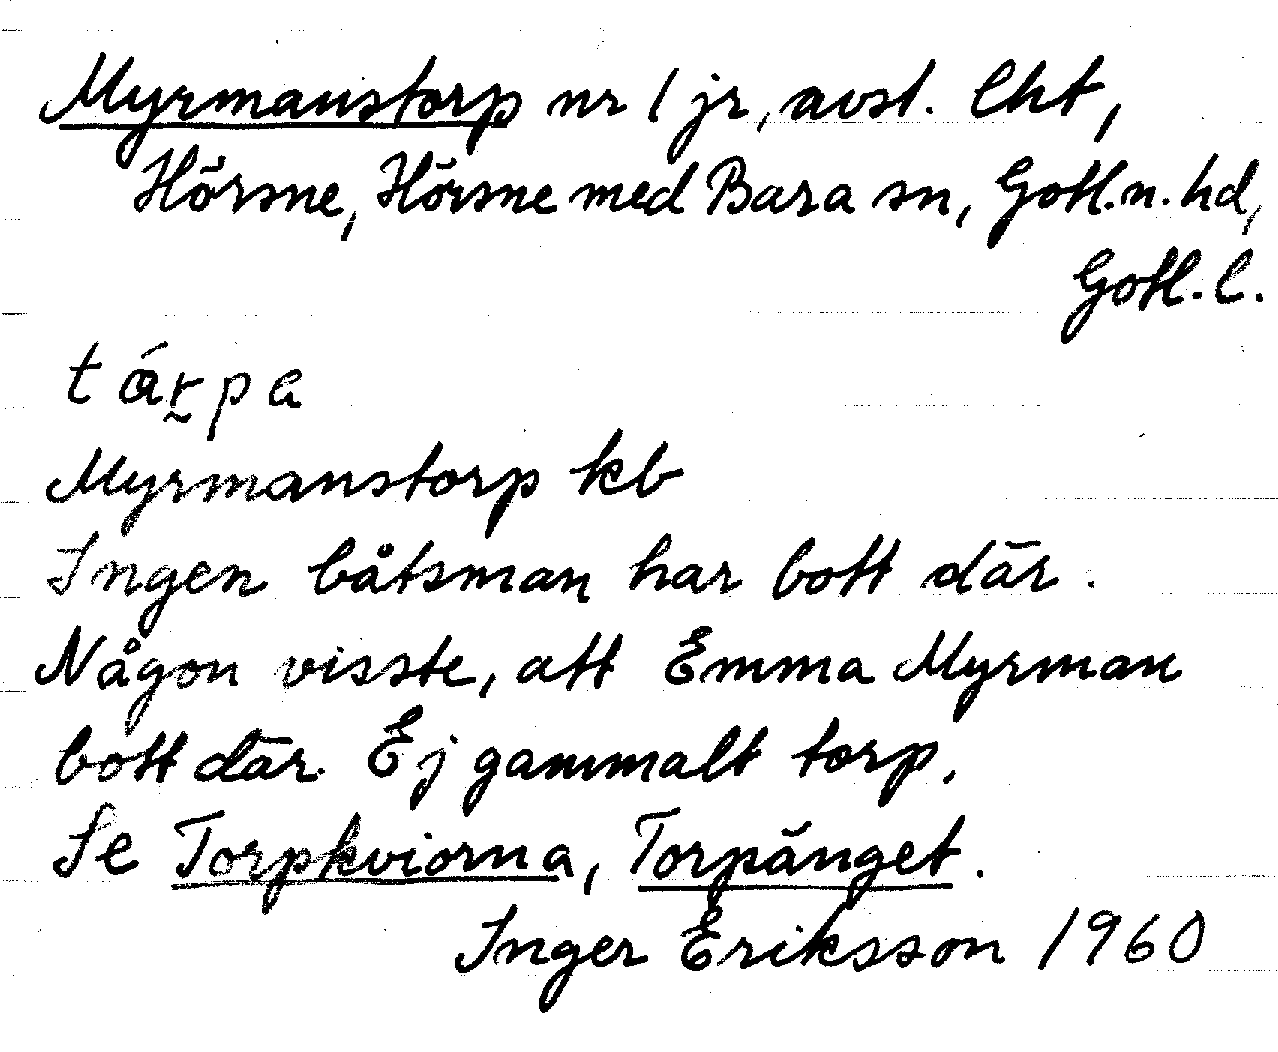 Myrmanstorp nr 1 jr, avst. lht,
Hörsne, Hörsne med Bara sn, Gotl. n. hd,
Gotl. l.
tárpa
Myrmanstorp kb
Ingen båtsman har bott där.
Någon visste, att Emma Myrman
bott där. Ej gammalt torp.
Se Torpkviorna, Torpänget.
Inger Eriksson 1960